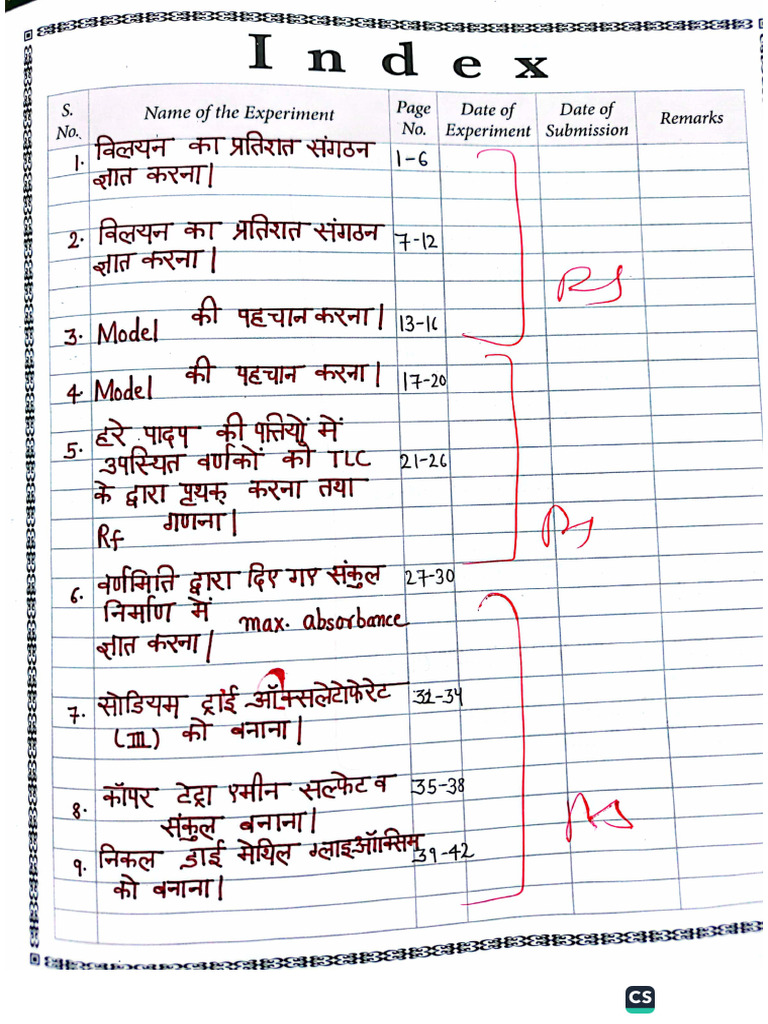 Index
S. No. Name of the Experiment Page No. Date of Experiment Date of Submission Remarks
1. विलयन का प्रतिरात संगठन 1-6
ज्ञात करना|
2. विलयन का प्रतिरात संगठन 7-12
ज्ञात करना|
3. Model की पहचान करना| 13-16
4. Model की पहचान करना| 17-20
5. हरे पादप की पत्तियों में
उपस्थित वर्णकों को TLC 21-26
के द्वारा पृथक् करना तथा
Rf गणना|
6. वर्णमिति द्वारा दिए गए संकुल 27-30
निर्माण में max. absorbance
ज्ञात करना|
7. सोडियम ट्राई ऑक्सलेटोफेरेट 31-34
(III) को बनाना|
8. कॉपर टेट्रा एमीन सल्फेट व 35-38
संकुल बनाना|
9. निकल डाई मेथिल ग्लाइऑक्सिम 39-42
को बनाना|
CS